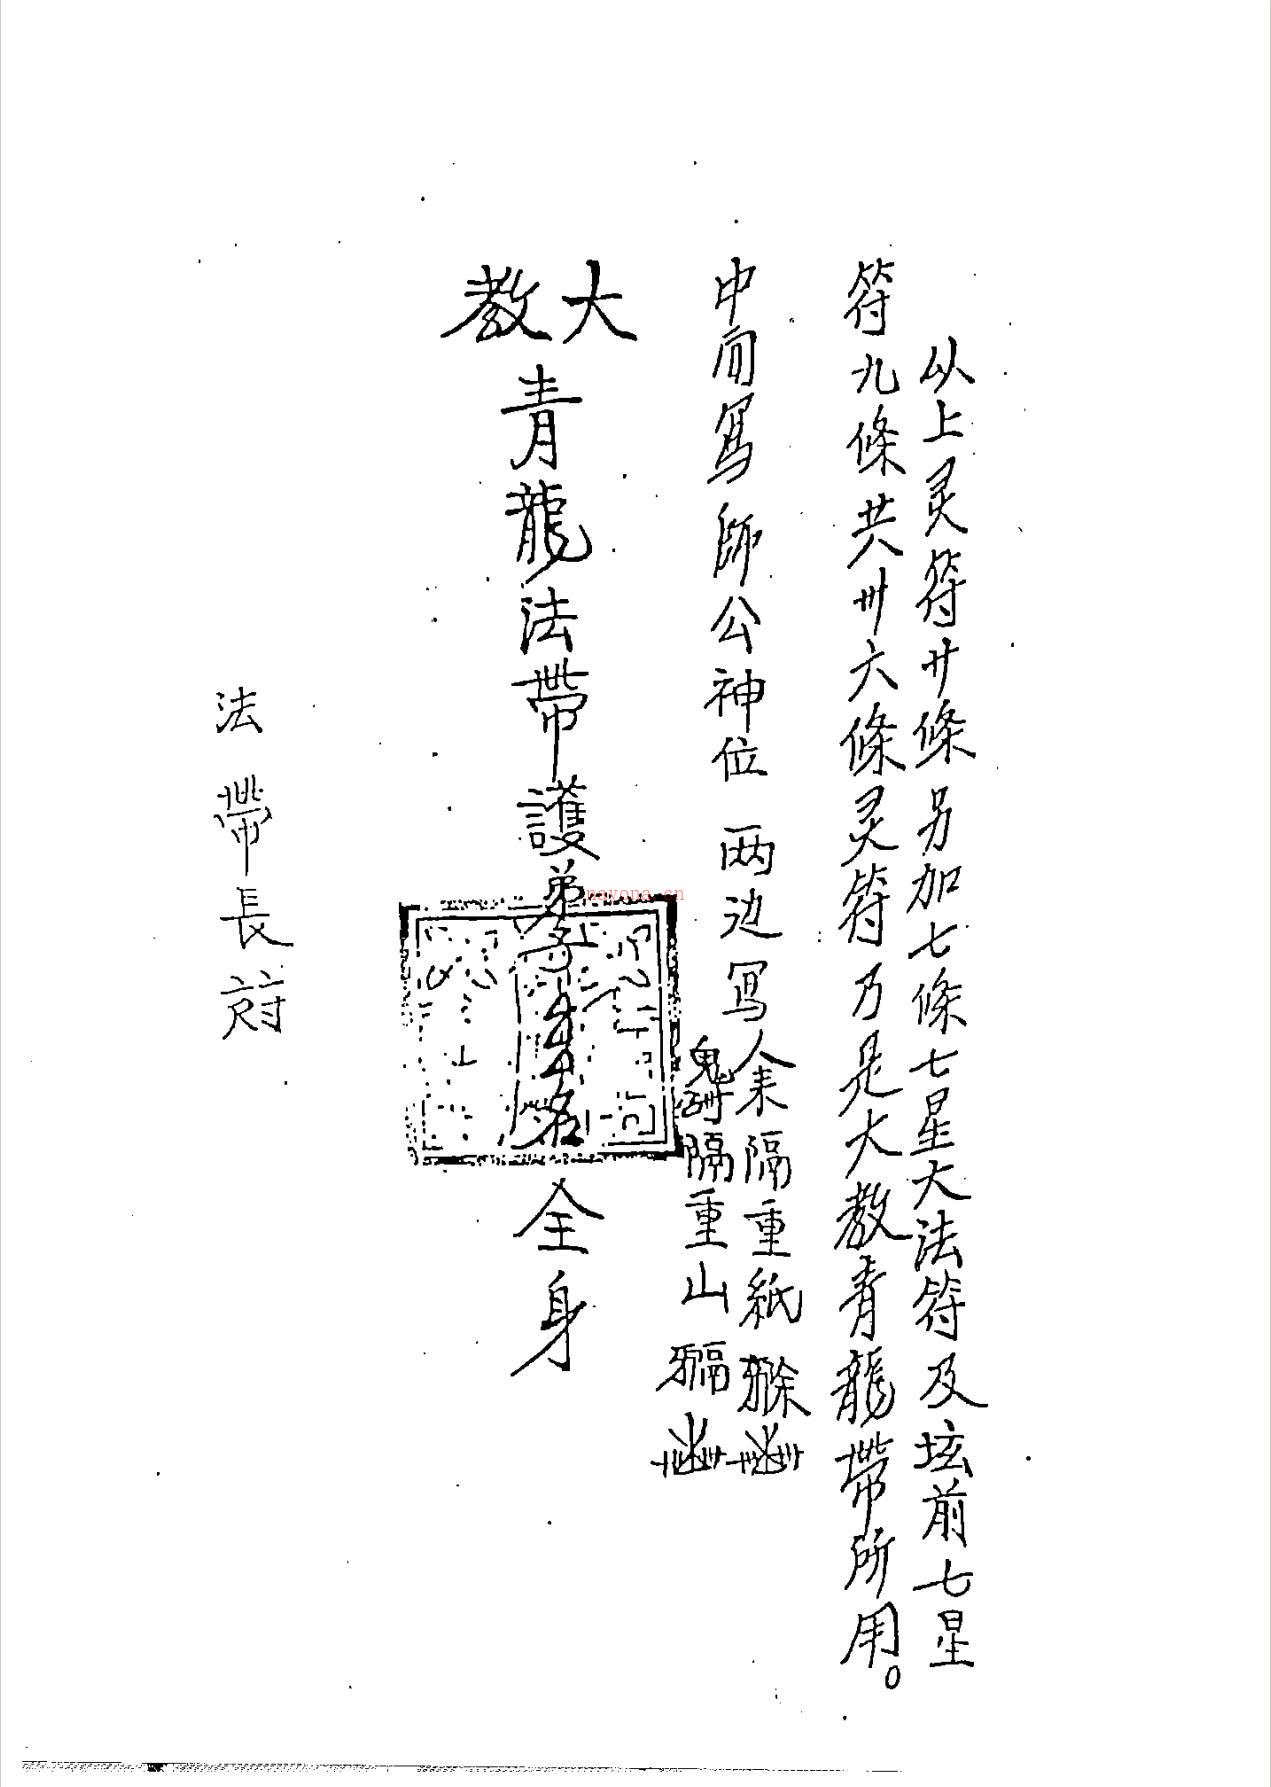 从上灵符廿條另加七條七星大法符及坛前七星
符九條共卅六條灵符乃是大教青龍帶所用。
中间寫師公神位 两边寫
人来隔重紙
鬼 隔重山
大教
青龍法帶護弟子 名全身
法帶長
nayona.cn